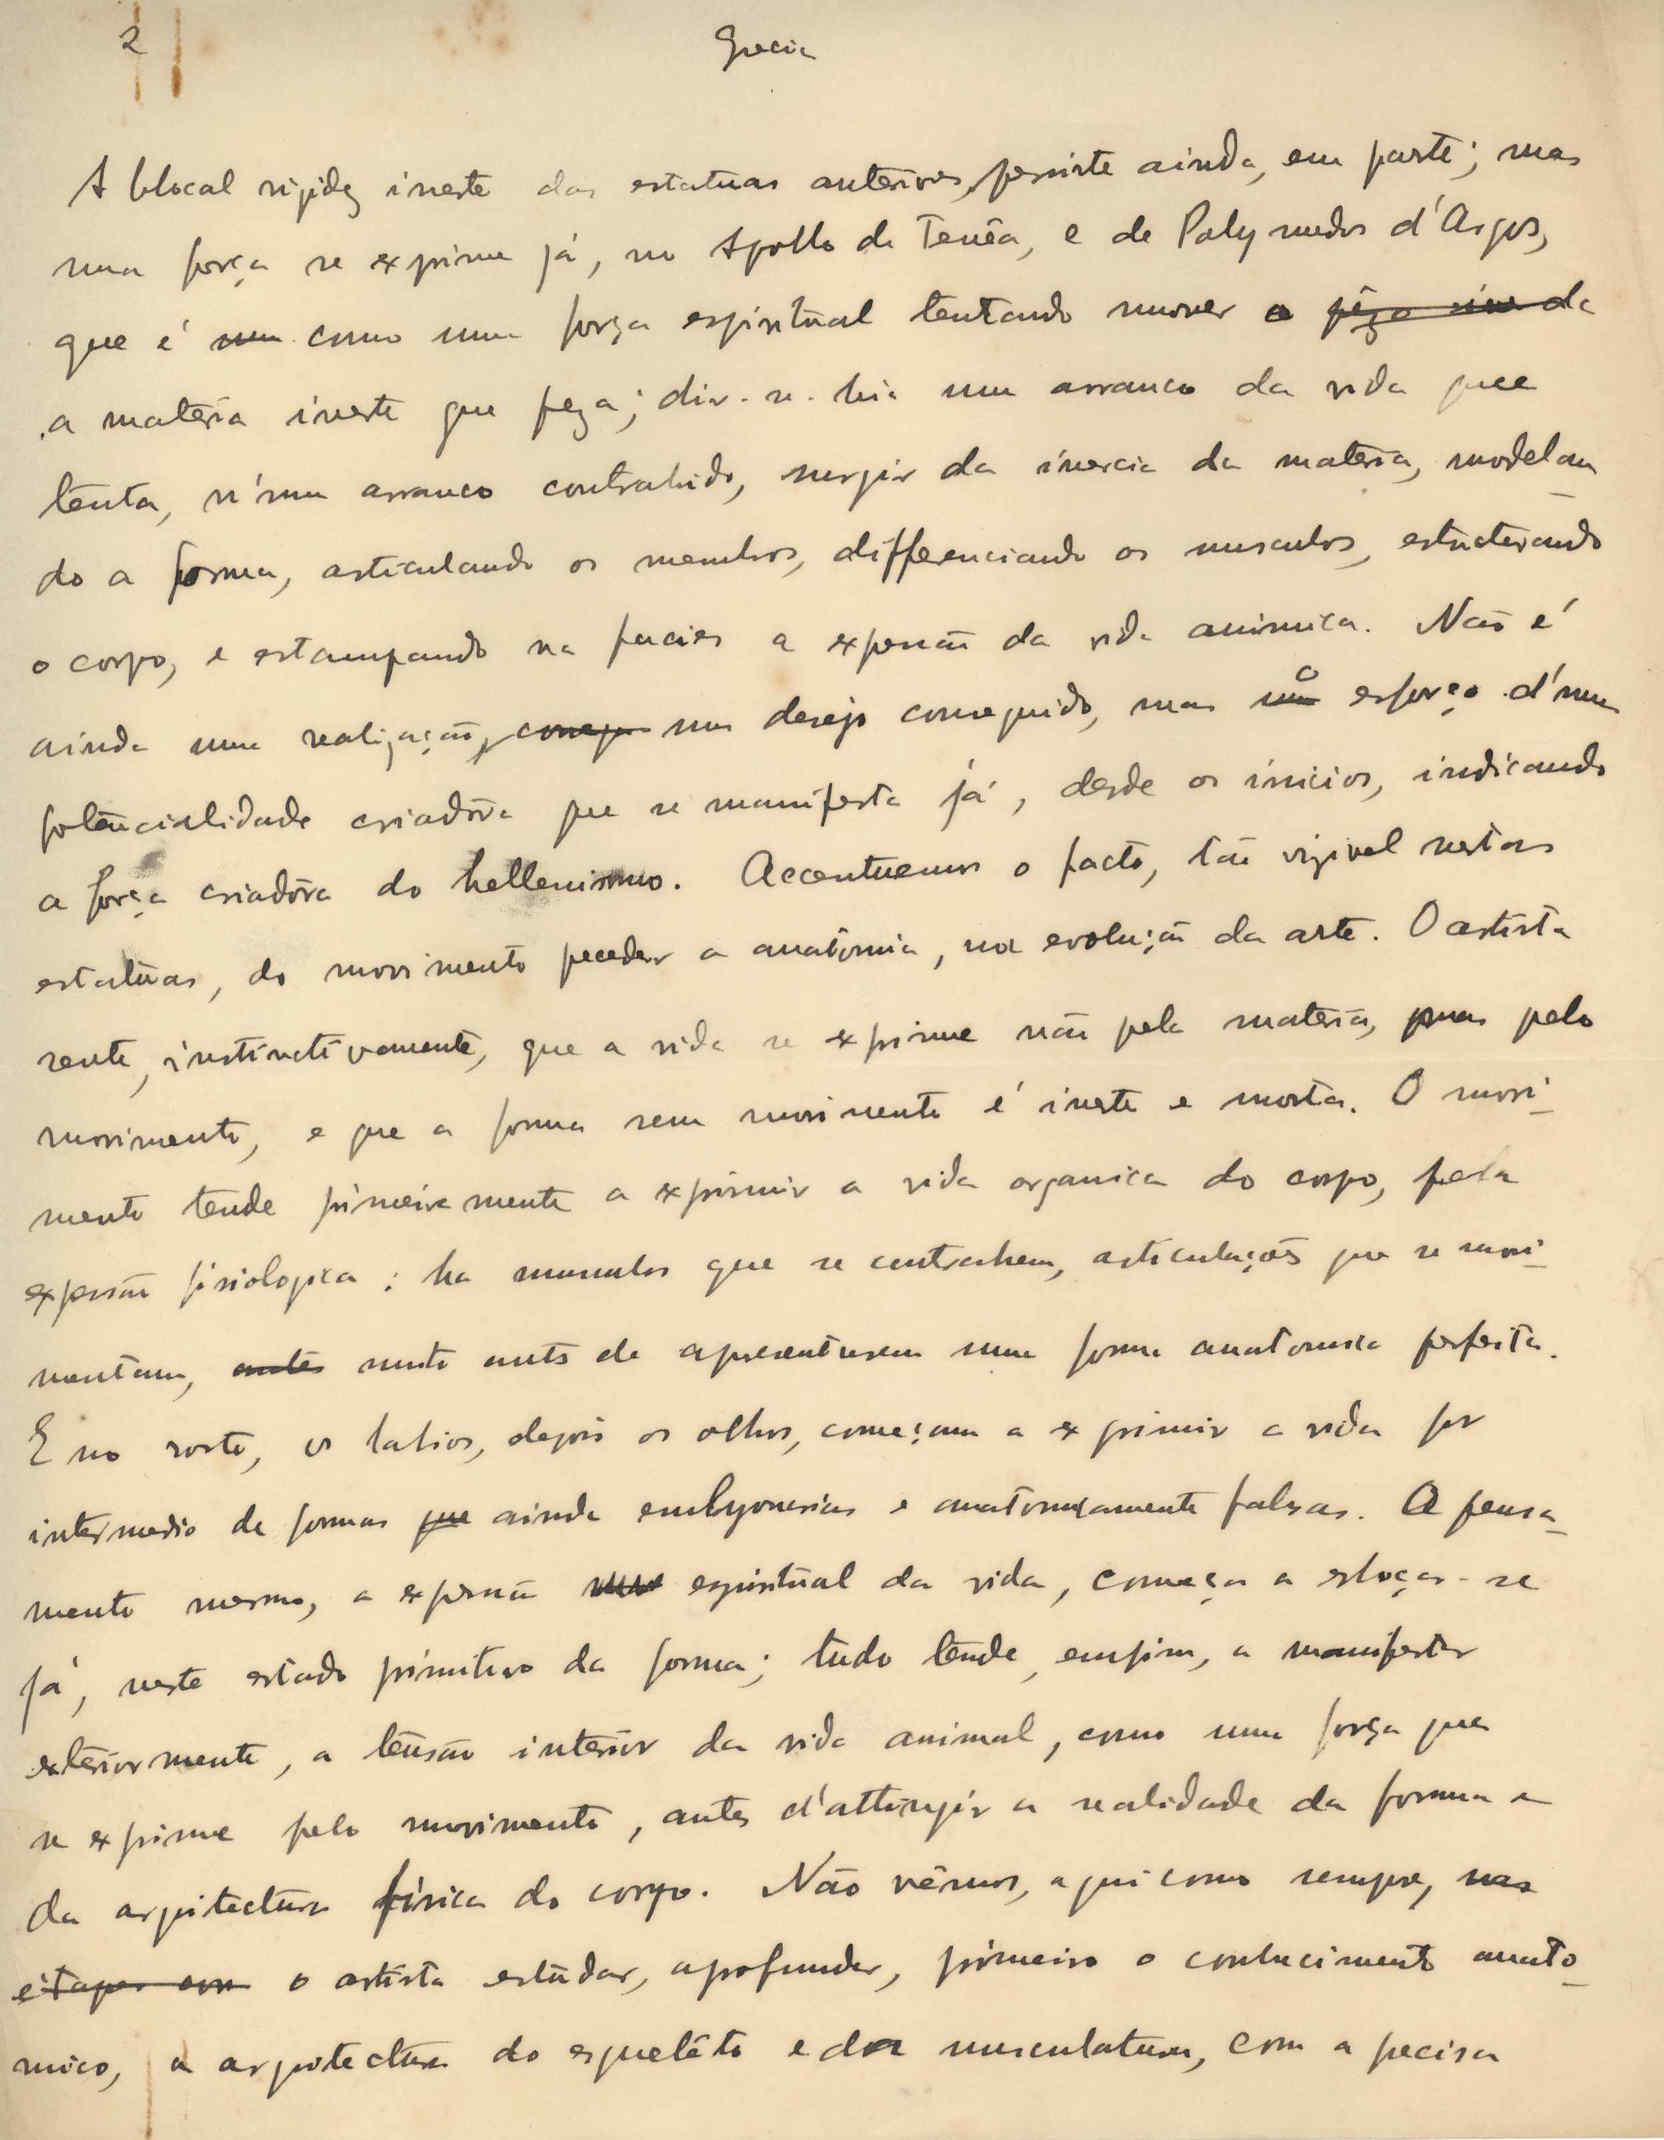 2
Grecia
A blocal rigidez inerte das estatuas anteriores, persiste ainda, em parte; mas
uma força se exprime já, no Apollo de Tenêa, e de Polymedes d'Argos,
que é um como uma força espiritual tentando mover o pêzo da
a materia inerte que peza; dir-se-hia um arranco da vida que
tenta, n'um arranco contrahido, surgir da inercia da materia, modelan
do a forma, articulando os membros, differenciando os musculos, estructurando
o corpo, e estampando na facies a expressão da vida animica. Não é
ainda uma realização, um desejo conseguido, mas um o esforço d'uma
potencialidade criadôra que se manifesta já, desde os inicios, indicando
a força criadôra do hellenismo. Accentuemos o facto, tão vizivel nestas
estatuas, do movimento preceder a anatomia, na evolução da arte. O artista
sente, instinctivamente, que a vida se exprime não pela materia, mas pelo
movimento, e que a forma sem movimento é inerte e morta. O movi-
mento tende primeiramente a exprimir a vida organica do corpo, pela
expressão fisiologica: ha musculos que se contrahem, articulações que se movi-
mentam, antes muito antes de apresentarem uma forma anatomica perfeita.
E no rosto, os labios, depois os olhos, começam a exprimir a vida por
intermedio de formas que ainda embryonarias e anatomicamente falsas. O pensa-
mento mesmo, a expressão espiritual da vida, começa a esboçar-se
já, neste estado primitivo da forma; tudo tende, emfim, a manifestar
exteriormente, a tensão interior da vida animal, como uma força que
se exprime pelo movimento, antes d'attingir a realidade da forma e
da arquitectura física do corpo. Não vêmos, aqui como sempre, nas
étapes o artista estudar, aprofundar, primeiro o conhecimento anato-
mico, a arquitectura do esqueleto e da musculatura, com a precisa